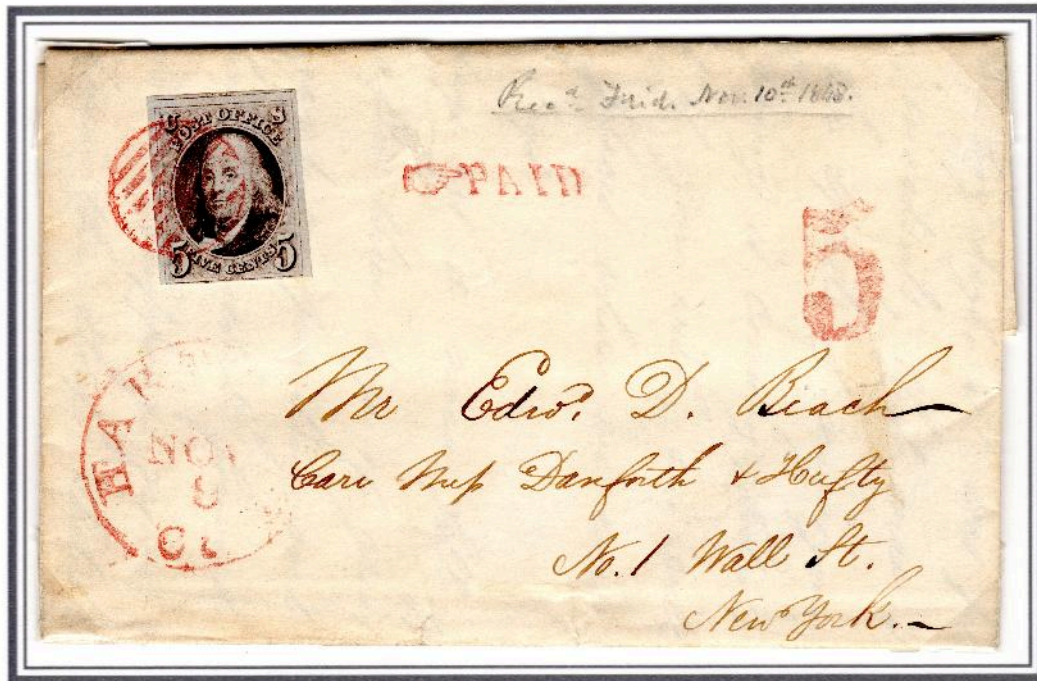 Rec^d Frid. Nov. 10th 1848.
U S
POST OFFICE
5 FIVE CENTS 5
PAID
5
Mr Edwd. D. Beach
HAR
NOV
8
Care Mess Danforth & Hufty
CT
No. 1 Wall St.
New York.